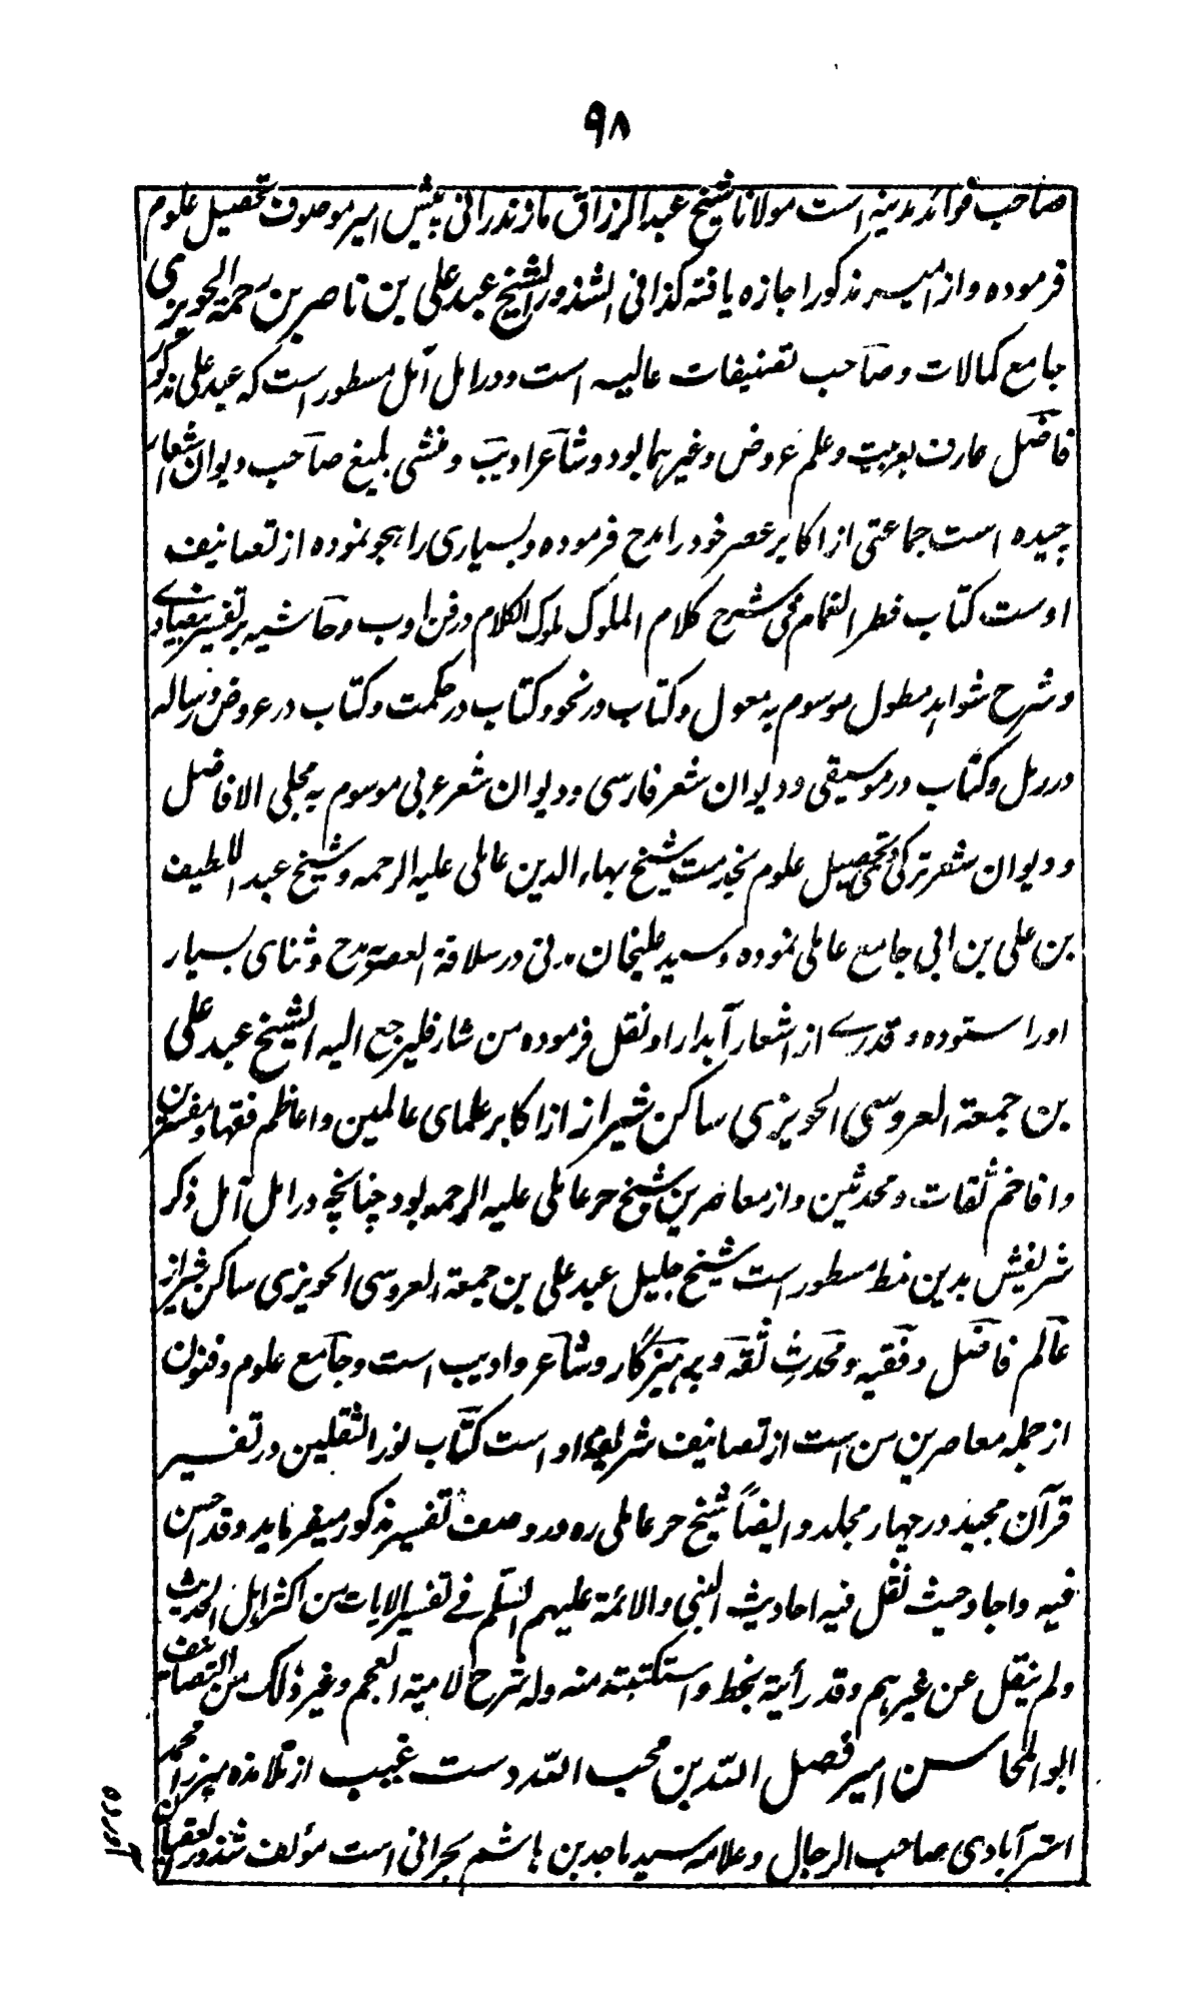 ۹۸
صاحب فوائد مدینه است مولانا شیخ عبد الرزاق مازندرانی پیش امیر موصوف تحصیل علوم
فرموده و از امیر مذکور اجازه یافته کذا فی الشذور الشیخ عبد علی بن ناصر بن رحمة الحویزی
جامع کمالات و صاحب تصنیفات عالیه است و در امل آمل مسطور است که عبد علی مذکور
فاضل عارف بعربیت و علم عروض و غیرهما بود و شاعر ادیب و منشی بلیغ صاحب دیوان اشعار
چیده است جماعتی از اکابر عصر خود را مدح فرموده و بسیاری را هجو نموده از تصانیف
اوست کتاب قطر الغمام فی شرح کلام الملوک ملوک الکلام در فن ادب و حاشیه بر تفسیر بیضاوی
و شرح شواهد مطول موسوم به معول و کتاب در نحو و کتاب در حکمت و کتاب در عروض و رساله
در رمل و کتاب در موسیقی و دیوان شعر فارسی و دیوان شعر عربی موسوم به مجلی الافاضل
و دیوان شعر ترکی و تحصیل علوم بخدمت شیخ بهاء الدین عاملی علیه الرحمه و شیخ عبد اللطیف
بن علی بن ابی جامع عاملی نموده و سید علیخان مدنی در سلافة العصر مدح و ثنای بسیار
او را ستوده و قدرے از اشعار آبدار او نقل فرموده من شاء فلیرجع الیه الشیخ عبد علی
بن جمعة العروسی الحویزی ساکن شیراز از اکابر علمای عالمین و اعاظم فقها و مفسرین
و افاخم ثقات و محدثین و از معاصرین شیخ حر عاملی علیه الرحمه بود چنانچه در امل آمل ذکر
شریفش بدین نمط مسطور است شیخ جلیل عبد علی بن جمعة العروسی الحویزی ساکن شیراز
عالم فاضل و فقیه و محدث ثقه و پرهیزگار و شاعر و ادیب است و جامع علوم و فنون
از جمله معاصرین من است از تصانیف شریفه او است کتاب نور الثقلین در تفسیر
قرآن مجید در چهار مجلد و ایضاً شیخ حر عاملی ره در وصف تفسیر مذکور میفرماید و قد احسن
فیه و اجاد حیث نقل فیه احادیث النبی و الائمة علیهم السلم فے تفسیر الایات من اکثر اهل الحدیث
و لم ینقل عن غیرهم و قد رأیته بخطه و استکتبته منه وله شرح لامیة العجم و غیر ذلک من التصانیف
ابو المحاسن امیر فضل الله بن محب الله دست غیب از تلامذه میرزا محمد
استر آبادی صاحب الرجال و علامه سید ماجد بن هاشم بحرانی است مؤلف شذور العقیان
آورده